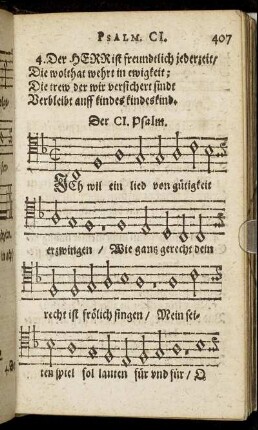 PSALM. CI. 407
4. Der HERR ist freundtlich jederzeit/
Die wolthat wehrt in ewigkeit;
Die trew der wir versichert sindt
Verbleibt auff kindes kindeskind.
Der CI. Psalm.
Ich wil ein lied von gütigkeit
erzwingen / Wie gantz gerecht dein
recht ist frölich singen / Mein sei-
ten spiel sol lauten für und für / O